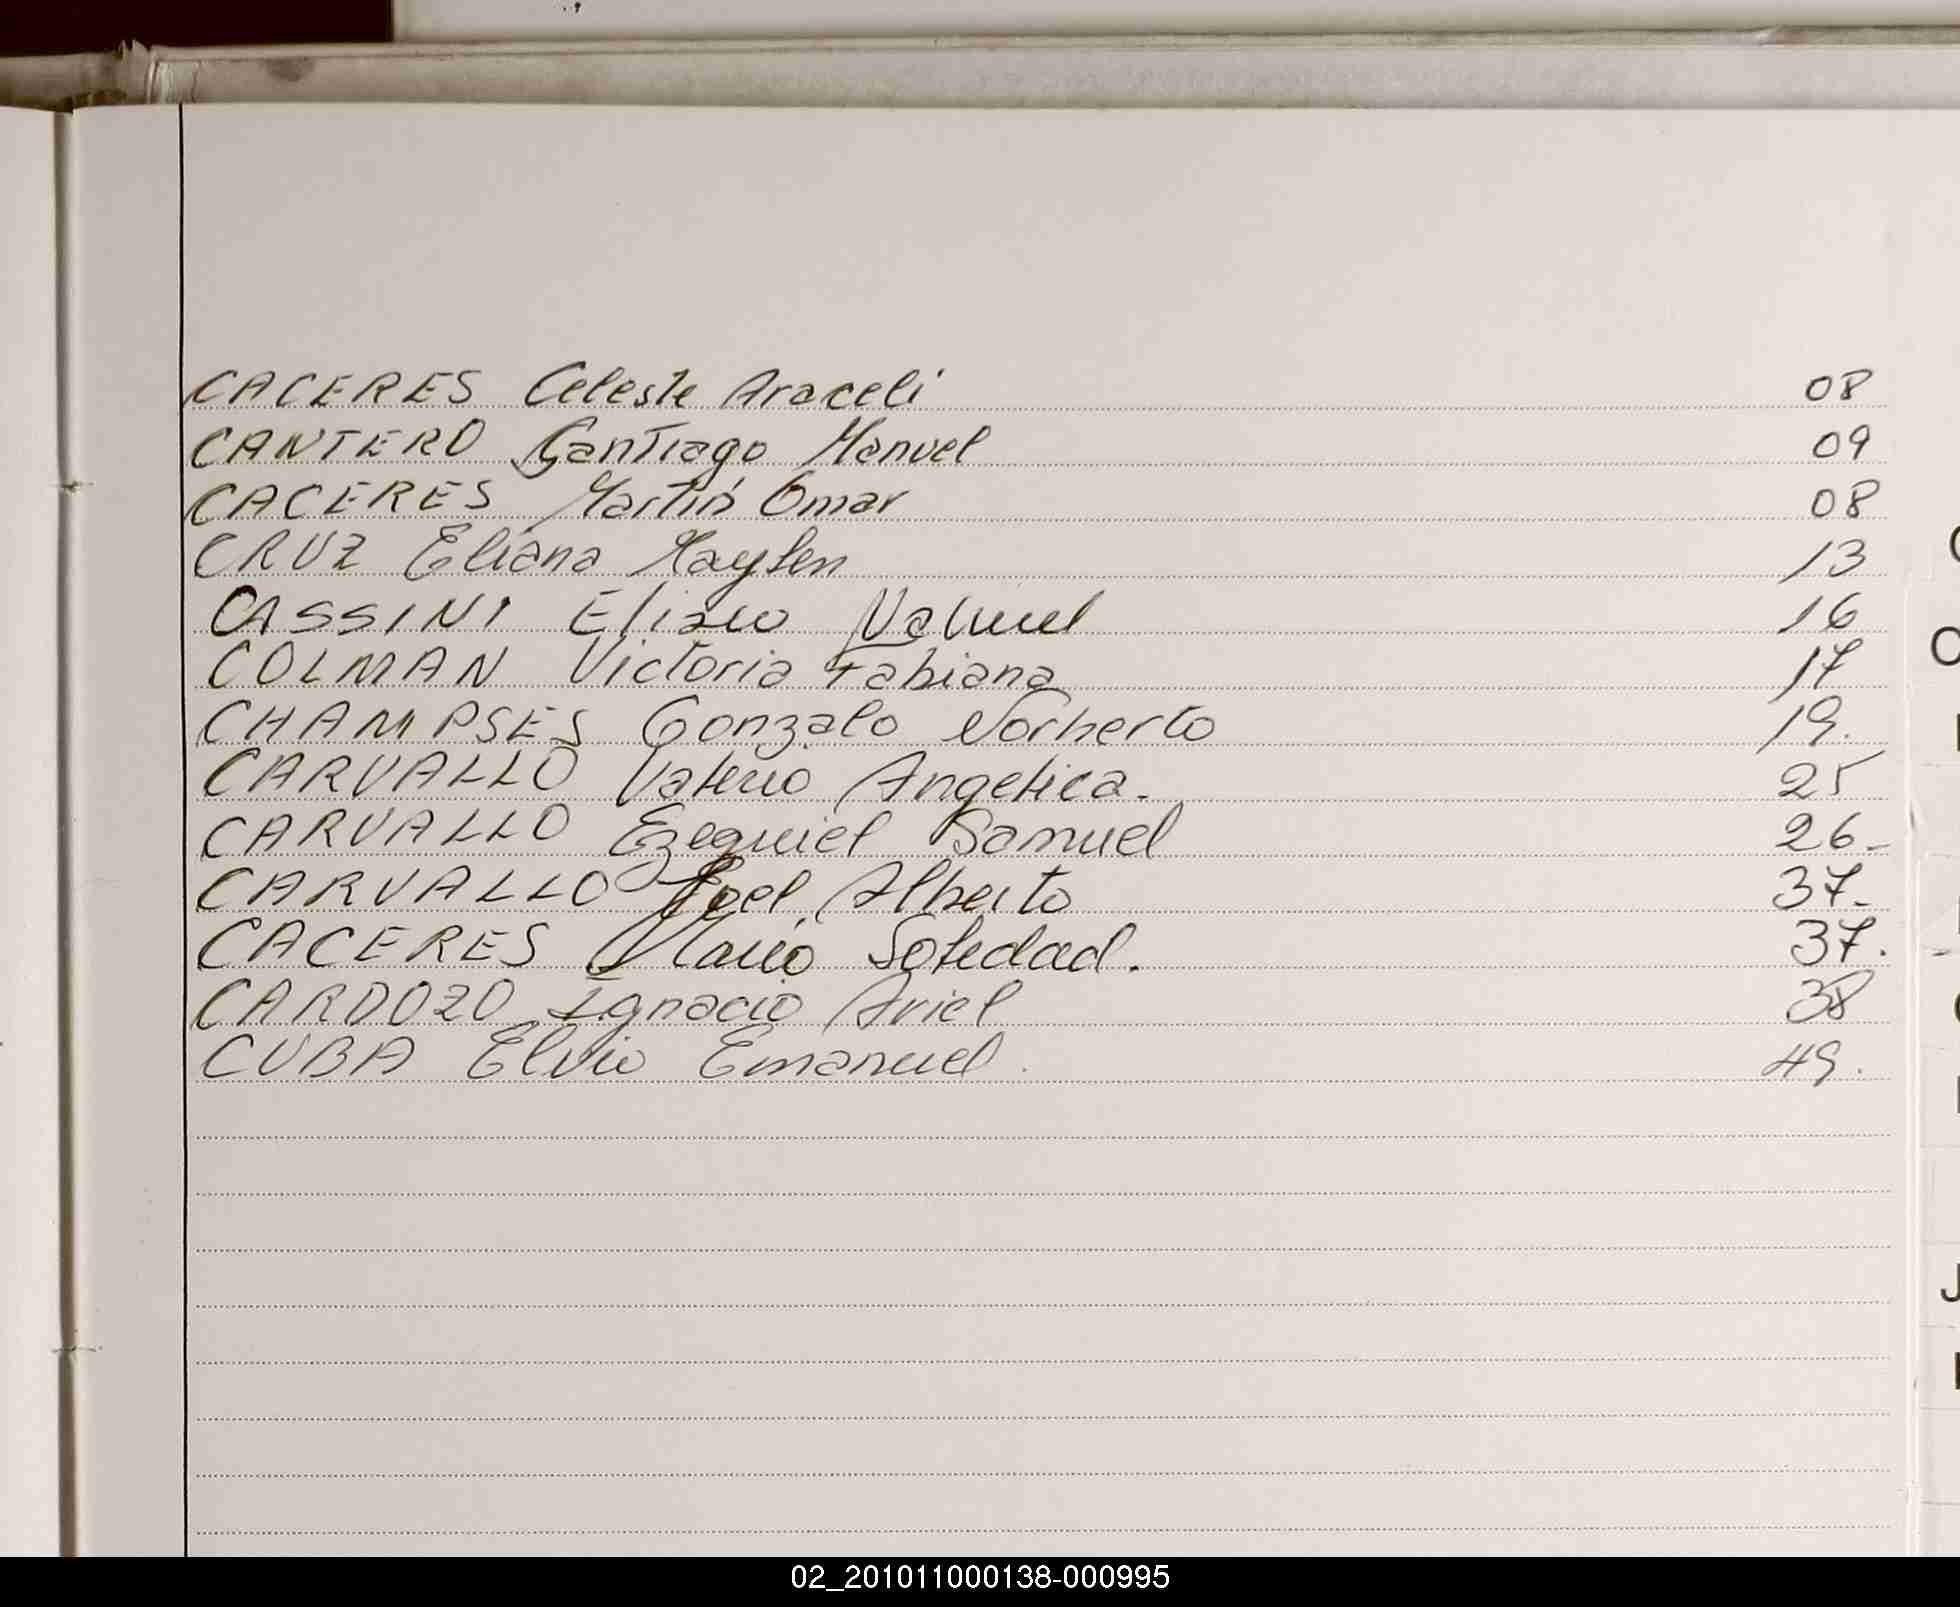 CACERES Celeste Araceli 08
CANTERO Santiago Manuel 09
CACERES Martín Omar 08
CRUZ Eliana Maylen 13
CASSINI Eliseo Nahuel 16
COLMAN Victoria Fabiana 17
CHAMPSES Gonzalo Norberto 19.
CARVALLO Angelica. 25
CARVALLO Ezequiel Samuel 26-
CARVALLO Joel Alberto 37-
CACERES María Soledad. 37.
CARDOZO Ignacio Ariel 38
CUBA Elvio Emanuel. 49.
02_201011000138-000995